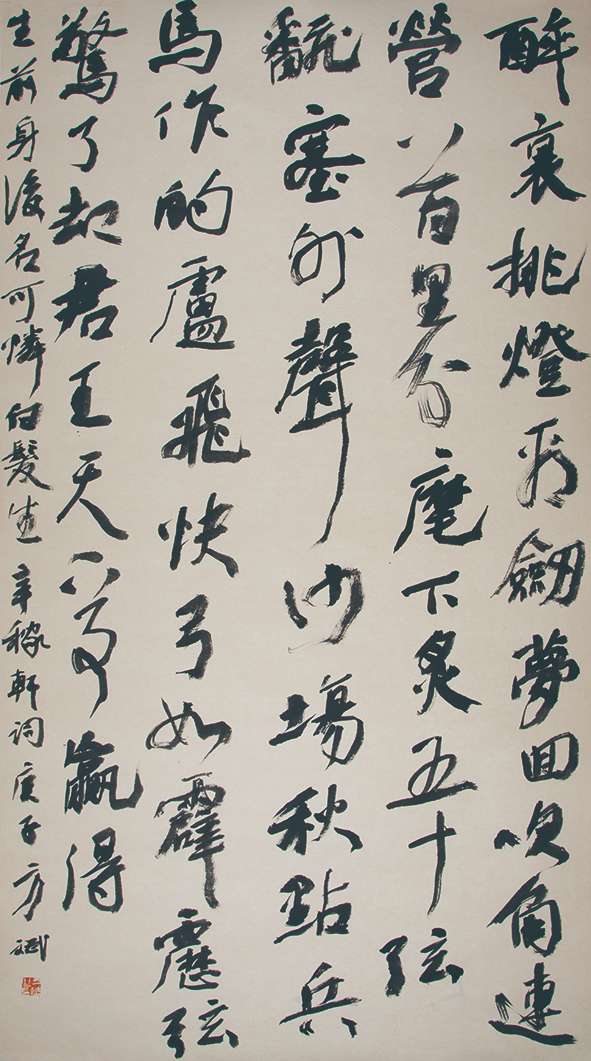 醉裏挑燈看劒夢回吹角連
營八百里分麾下炙五十弦
飜塞外聲沙場秋點兵
馬作的盧飛快弓如霹靂弦
驚了却君王天下事贏得
生前身後名可憐白髮生 辛稼軒詞 庚子方斌